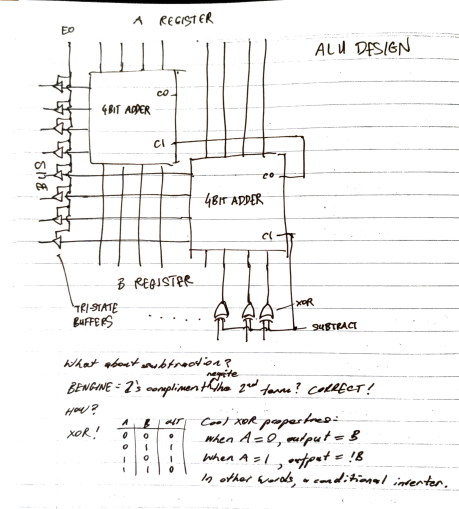 A REGISTER
EO
ALU DESIGN
CO
4 BIT ADDER
CI
BUS
CO
4 BIT ADDER
CI
B REGISTER
TRI-STATE
BUFFERS
XOR
SUBTRACT
What about subtraction?
negate
2's compliment the 2nd term? CORRECT!
HOW?
XOR!
A B OUT
0 0 0
0 1 1
1 0 1
1 1 0
Cool XOR properties:
When A = 0, output = B
When A = 1, output = !B
In other words, a conditional inverter.